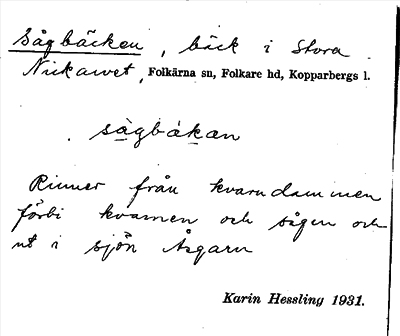 Sågbäcken, bäck i Stora
Nickarvet, Folkärna sn, Folkare hd, Kopparbergs l.
sågbäkan
Rinner från kvarndammen
förbi kvarnen och sågen och
ut i sjön Åsgarn
Karin Hessling 1931.